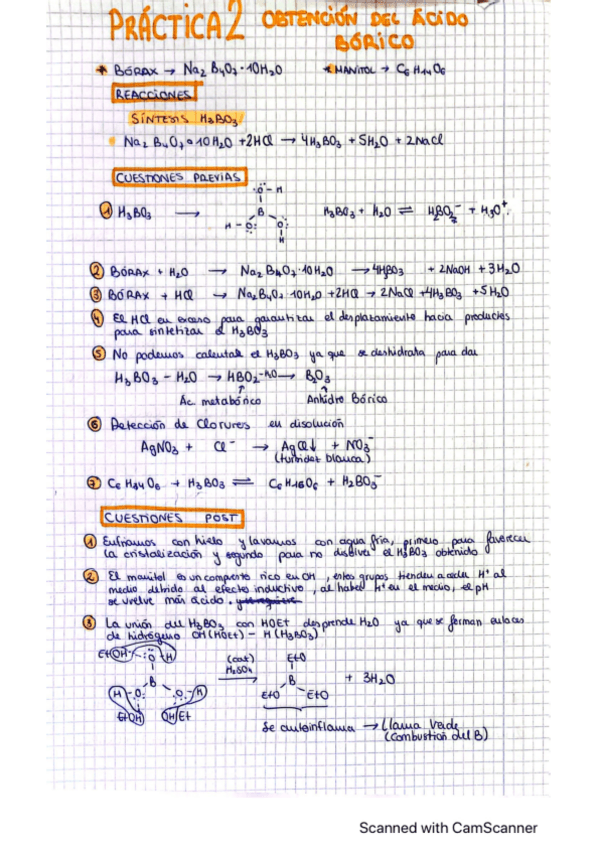 PRÁCTICA 2 OBTENCIÓN DEL ÁCIDO
BÓRICO
* BÓRAX → Na2 B4O7·10H2O * MANITOL → C6 H14 O6
REACCIONES
SÍNTESIS H3BO3
Na2 B4O7·10H2O +2HCl → 4H3BO3 + 5H2O + 2NaCl
CUESTIONES PREVIAS
1 H3BO3 → H3BO3 + H2O ⇌ H2BO3⁻ + H3O⁺
O - H
B
H - O O
H
2 BÓRAX + H2O → Na2B4O7·10H2O → 4HBO3 + 2NaOH + 3H2O
3 BÓRAX + HCl → Na2B4O7·10H2O +2HCl → 2NaCl +4H3BO3 +5H2O
4 El HCl en exceso para garantizar el desplazamiento hacia productos
para sintetizar el H3BO3
5 No podemos calentar el H3BO3 ya que se deshidrata para dar
H3BO3 - H2O → HBO2 -H2O → B2O3
Ac. metabórico Anhidro Bórico
6 Detección de Cloruros en disolución
AgNO3 + Cl⁻ → AgCl↓ + NO3⁻
(turbidez blanca)
7 C6 H14 O6 + H3BO3 ⇌ C6H15O6 + H2BO3⁻
CUESTIONES POST
1 Enfriamos con hielo y lavamos con agua fría, primero para favorecer
la cristalización y segundo para no disolver el H3BO3 obtenido
2 El manitol es un compuesto rico en OH, estos grupos tienden a ceder H⁺ al
medio debido al efecto inductivo, al haber H⁺ en el medio, el pH
se vuelve más ácido.
3 La unión del H3BO3 con HOEt desprende H2O ya que se forman enlaces
de hidrógeno OH(HOEt) - H(H3BO3)
EtOH O H (cat) EtO
H2SO4
B → B + 3H2O
H O O H EtO EtO
EtOH OHEt
Se autoinflama → Llama Verde
(Combustión del B)
Scanned with CamScanner